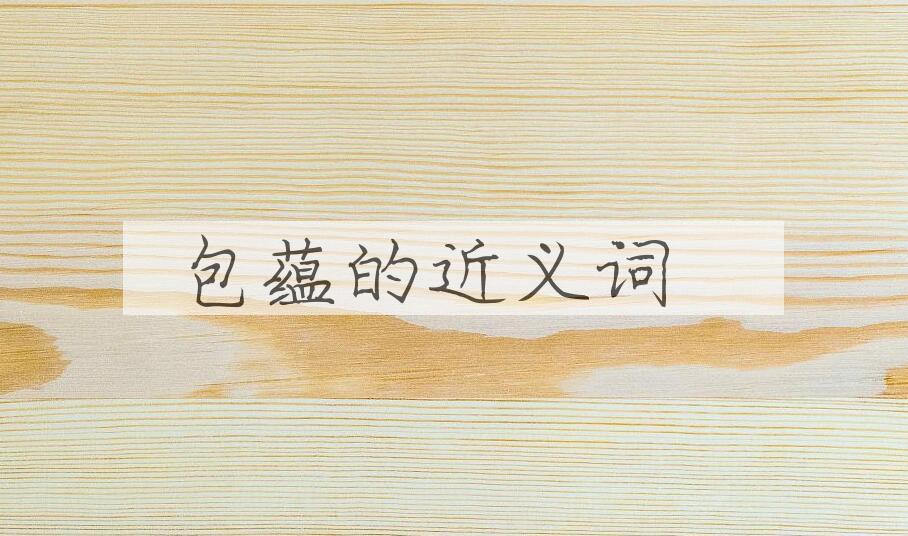 包蕴的近义词